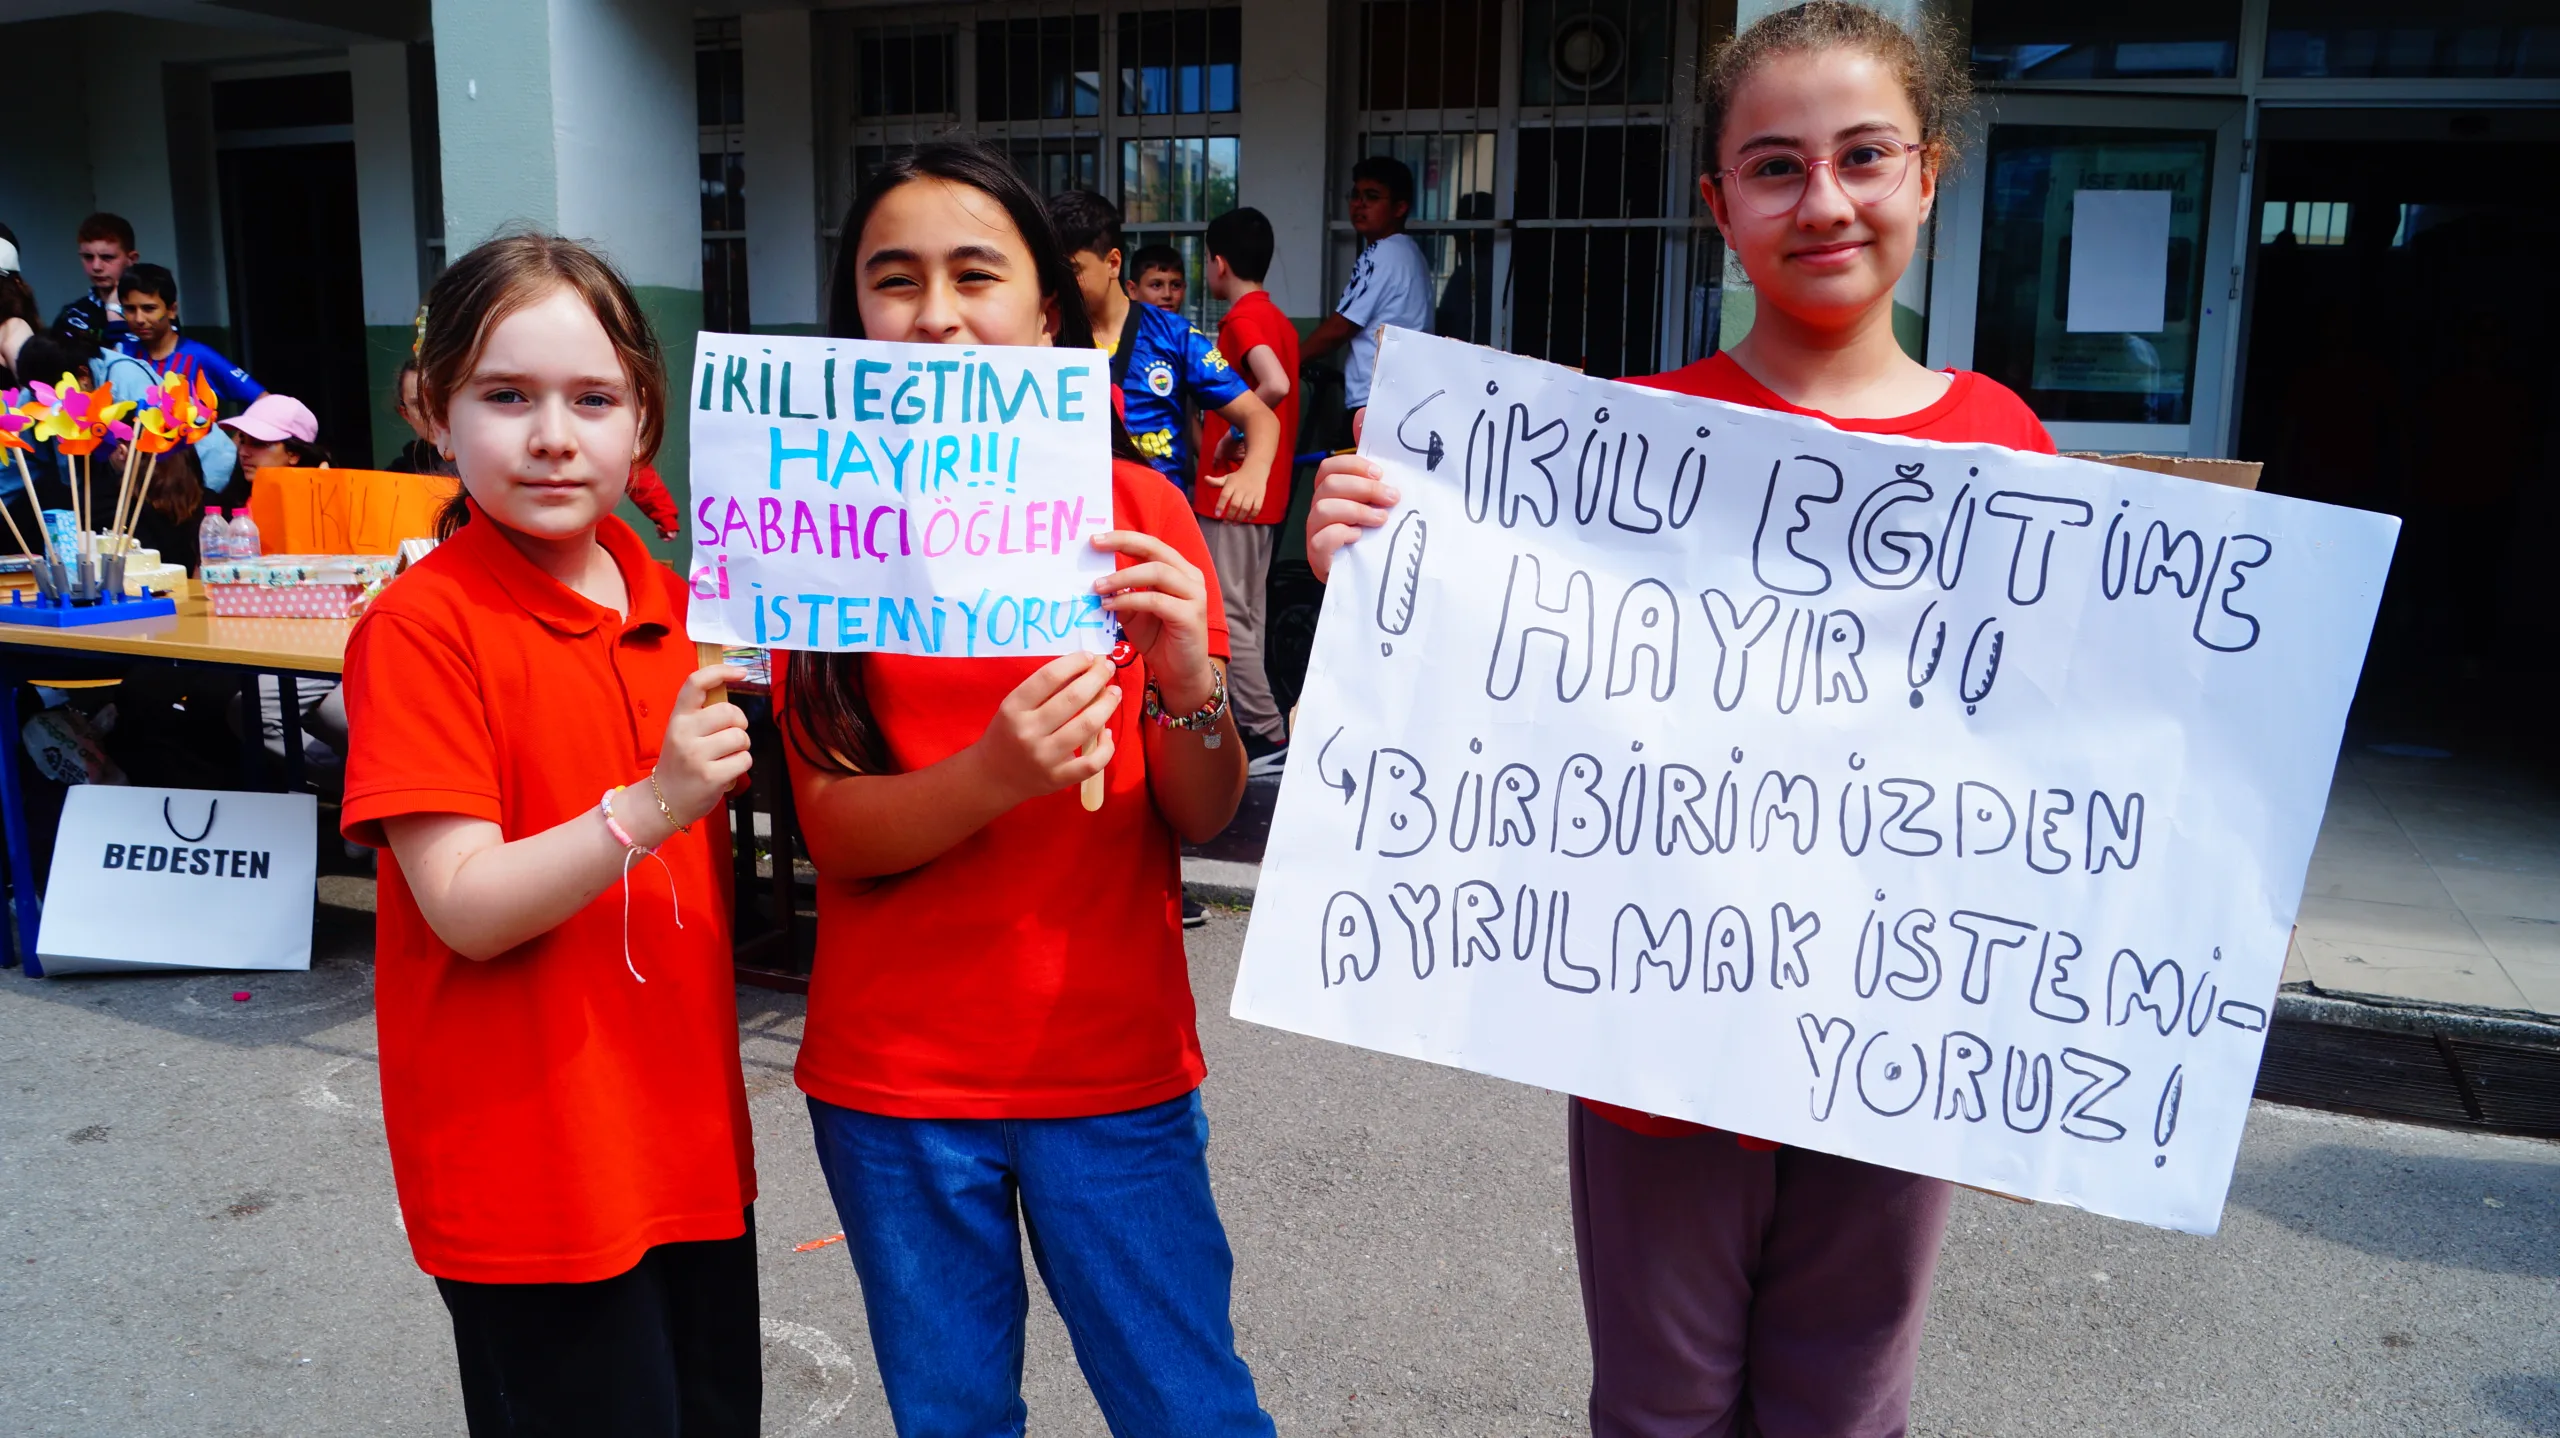 İKİLİ EĞİTİME
HAYIR!!!
SABAHÇI ÖĞLEN-
Cİ
İSTEMİYORUZ!
İKİLİ EĞİTİME
! HAYIR !!
BİRBİRİMİZDEN
AYRILMAK İSTEMİ-
YORUZ!
İKİLİ
BEDESTEN
İŞE ALIM